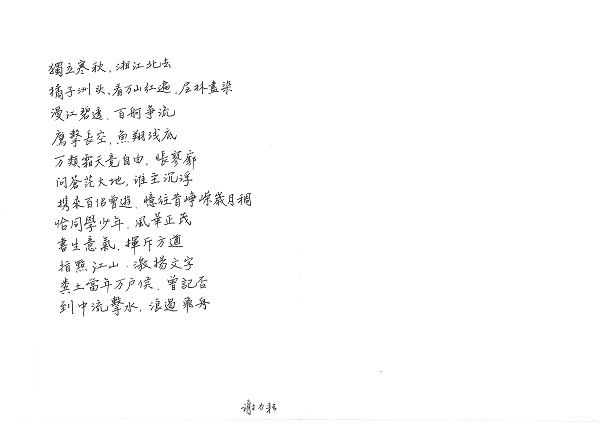 獨立寒秋，湘江北去
橘子洲头，看万山红遍，层林盡染
漫江碧透，百舸争流
鹰擊長空，魚翔浅底
万類霜天競自由，悵寥廓
问蒼茫大地，谁主沉浮
携來百侣曾遊，憶往昔崢嶸歲月稠
恰同學少年，風華正茂
書生意氣，揮斥方遒
指點江山，激揚文字
粪土當年万户侯，曾記否
到中流擊水，浪遏飛舟
謝力